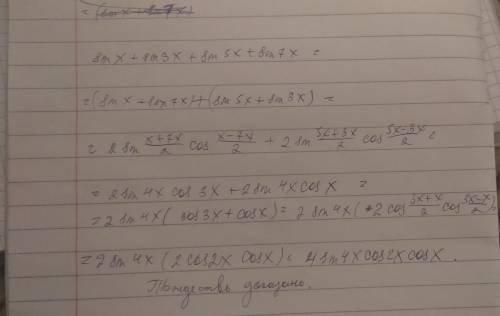 sin x + sin 3x + sin 5x + sin 7x =
= (sin x + sin 7x) + (sin 5x + sin 3x) =
= 2 sin (x+7x)/2 cos (x-7x)/2 + 2 sin (5x+3x)/2 cos (5x-3x)/2 =
= 2 sin 4x cos 3x + 2 sin 4x cos x =
= 2 sin 4x ( cos 3x + cos x) = 2 sin 4x ( 2 cos (3x+x)/2 cos (3x-x)/2) =
= 2 sin 4x (2 cos 2x cos x) = 4 sin 4x cos 2x cos x.
Тождество доказано.